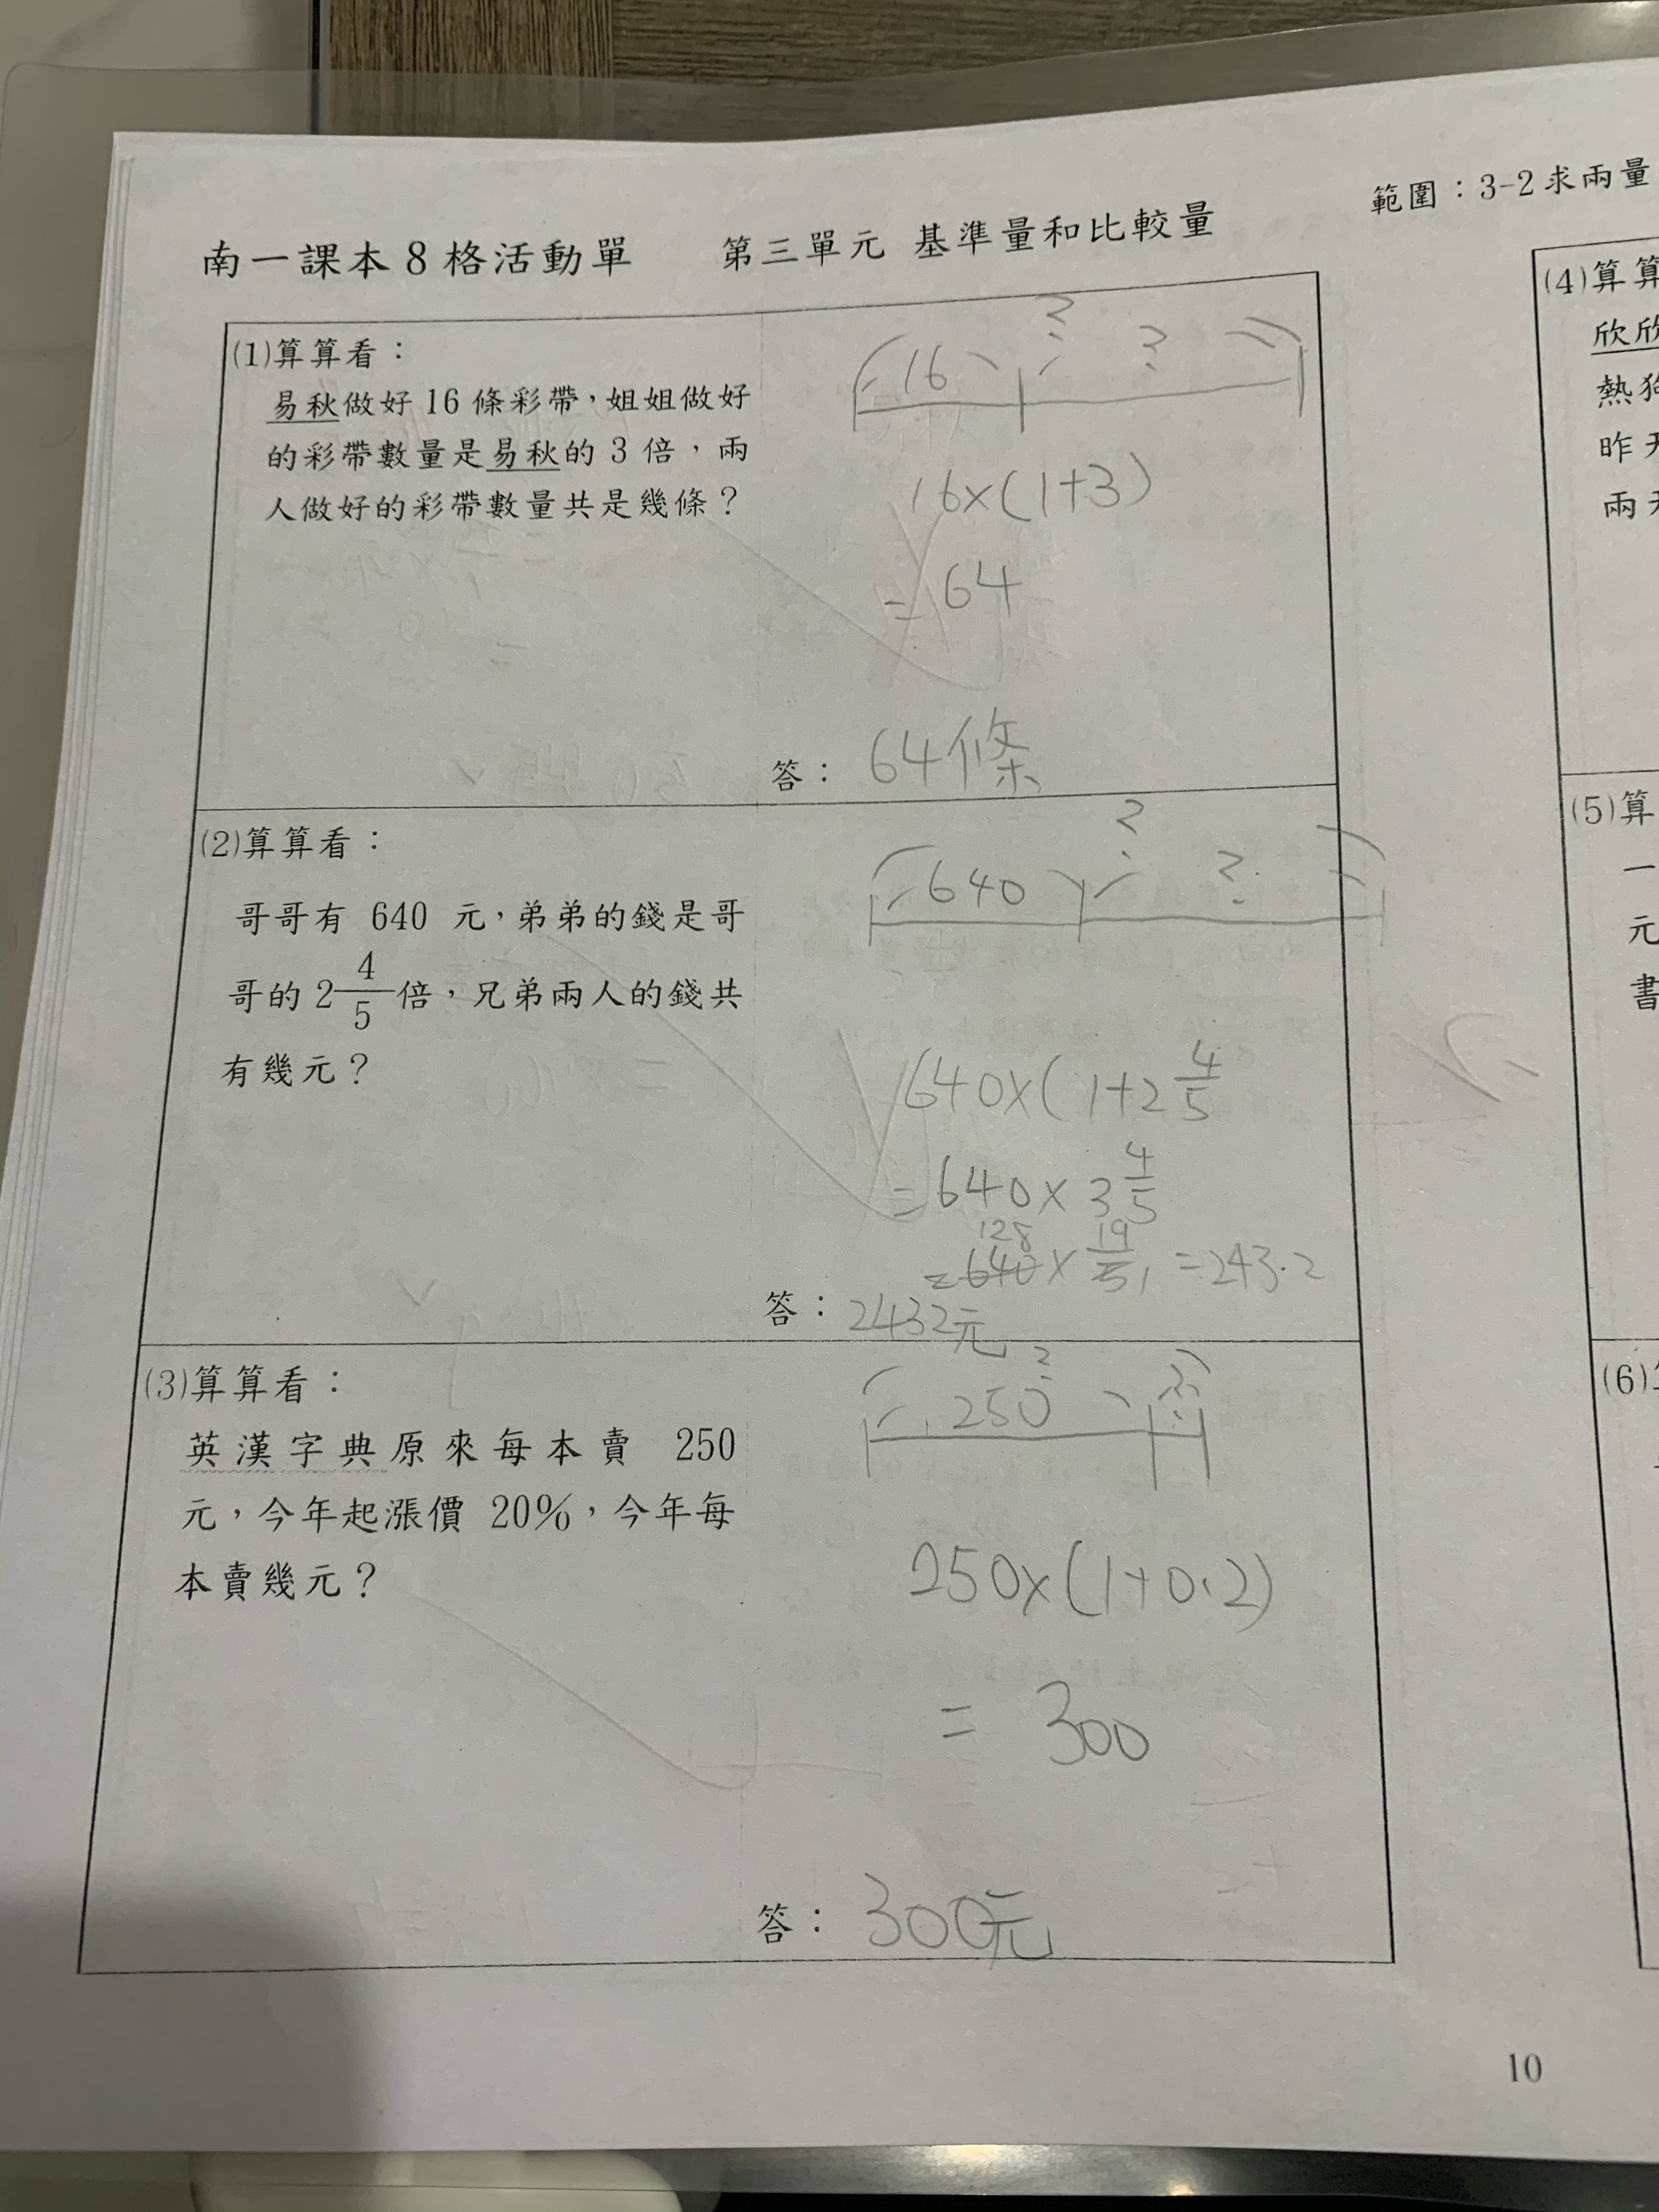 範圍：3-2求兩量
南一課本8格活動單 第三單元 基準量和比較量
(1)算算看：
易秋做好16條彩帶，姐姐做好
的彩帶數量是易秋的 3 倍，兩
人做好的彩帶數量共是幾條？
?
16 ?
16×(1+3)
= 64
答： 64條
(2)算算看：
哥哥有 640 元，弟弟的錢是哥
哥的 2 4/5 倍，兄弟兩人的錢共
有幾元？
?
640 ?
640×(1+2 4/5
= 640 × 3 4/5
128 19
= 640 × 19/5 1 = 243.2
答： 2432元
(3)算算看：
英漢字典原來每本賣 250
元，今年起漲價 20%，今年每
本賣幾元？
?
250 ?
250×(1+0.2)
= 300
答： 300元
(4)算算
欣欣
熱狗
昨天
兩天
(5)算
一
元
書
(6)
10